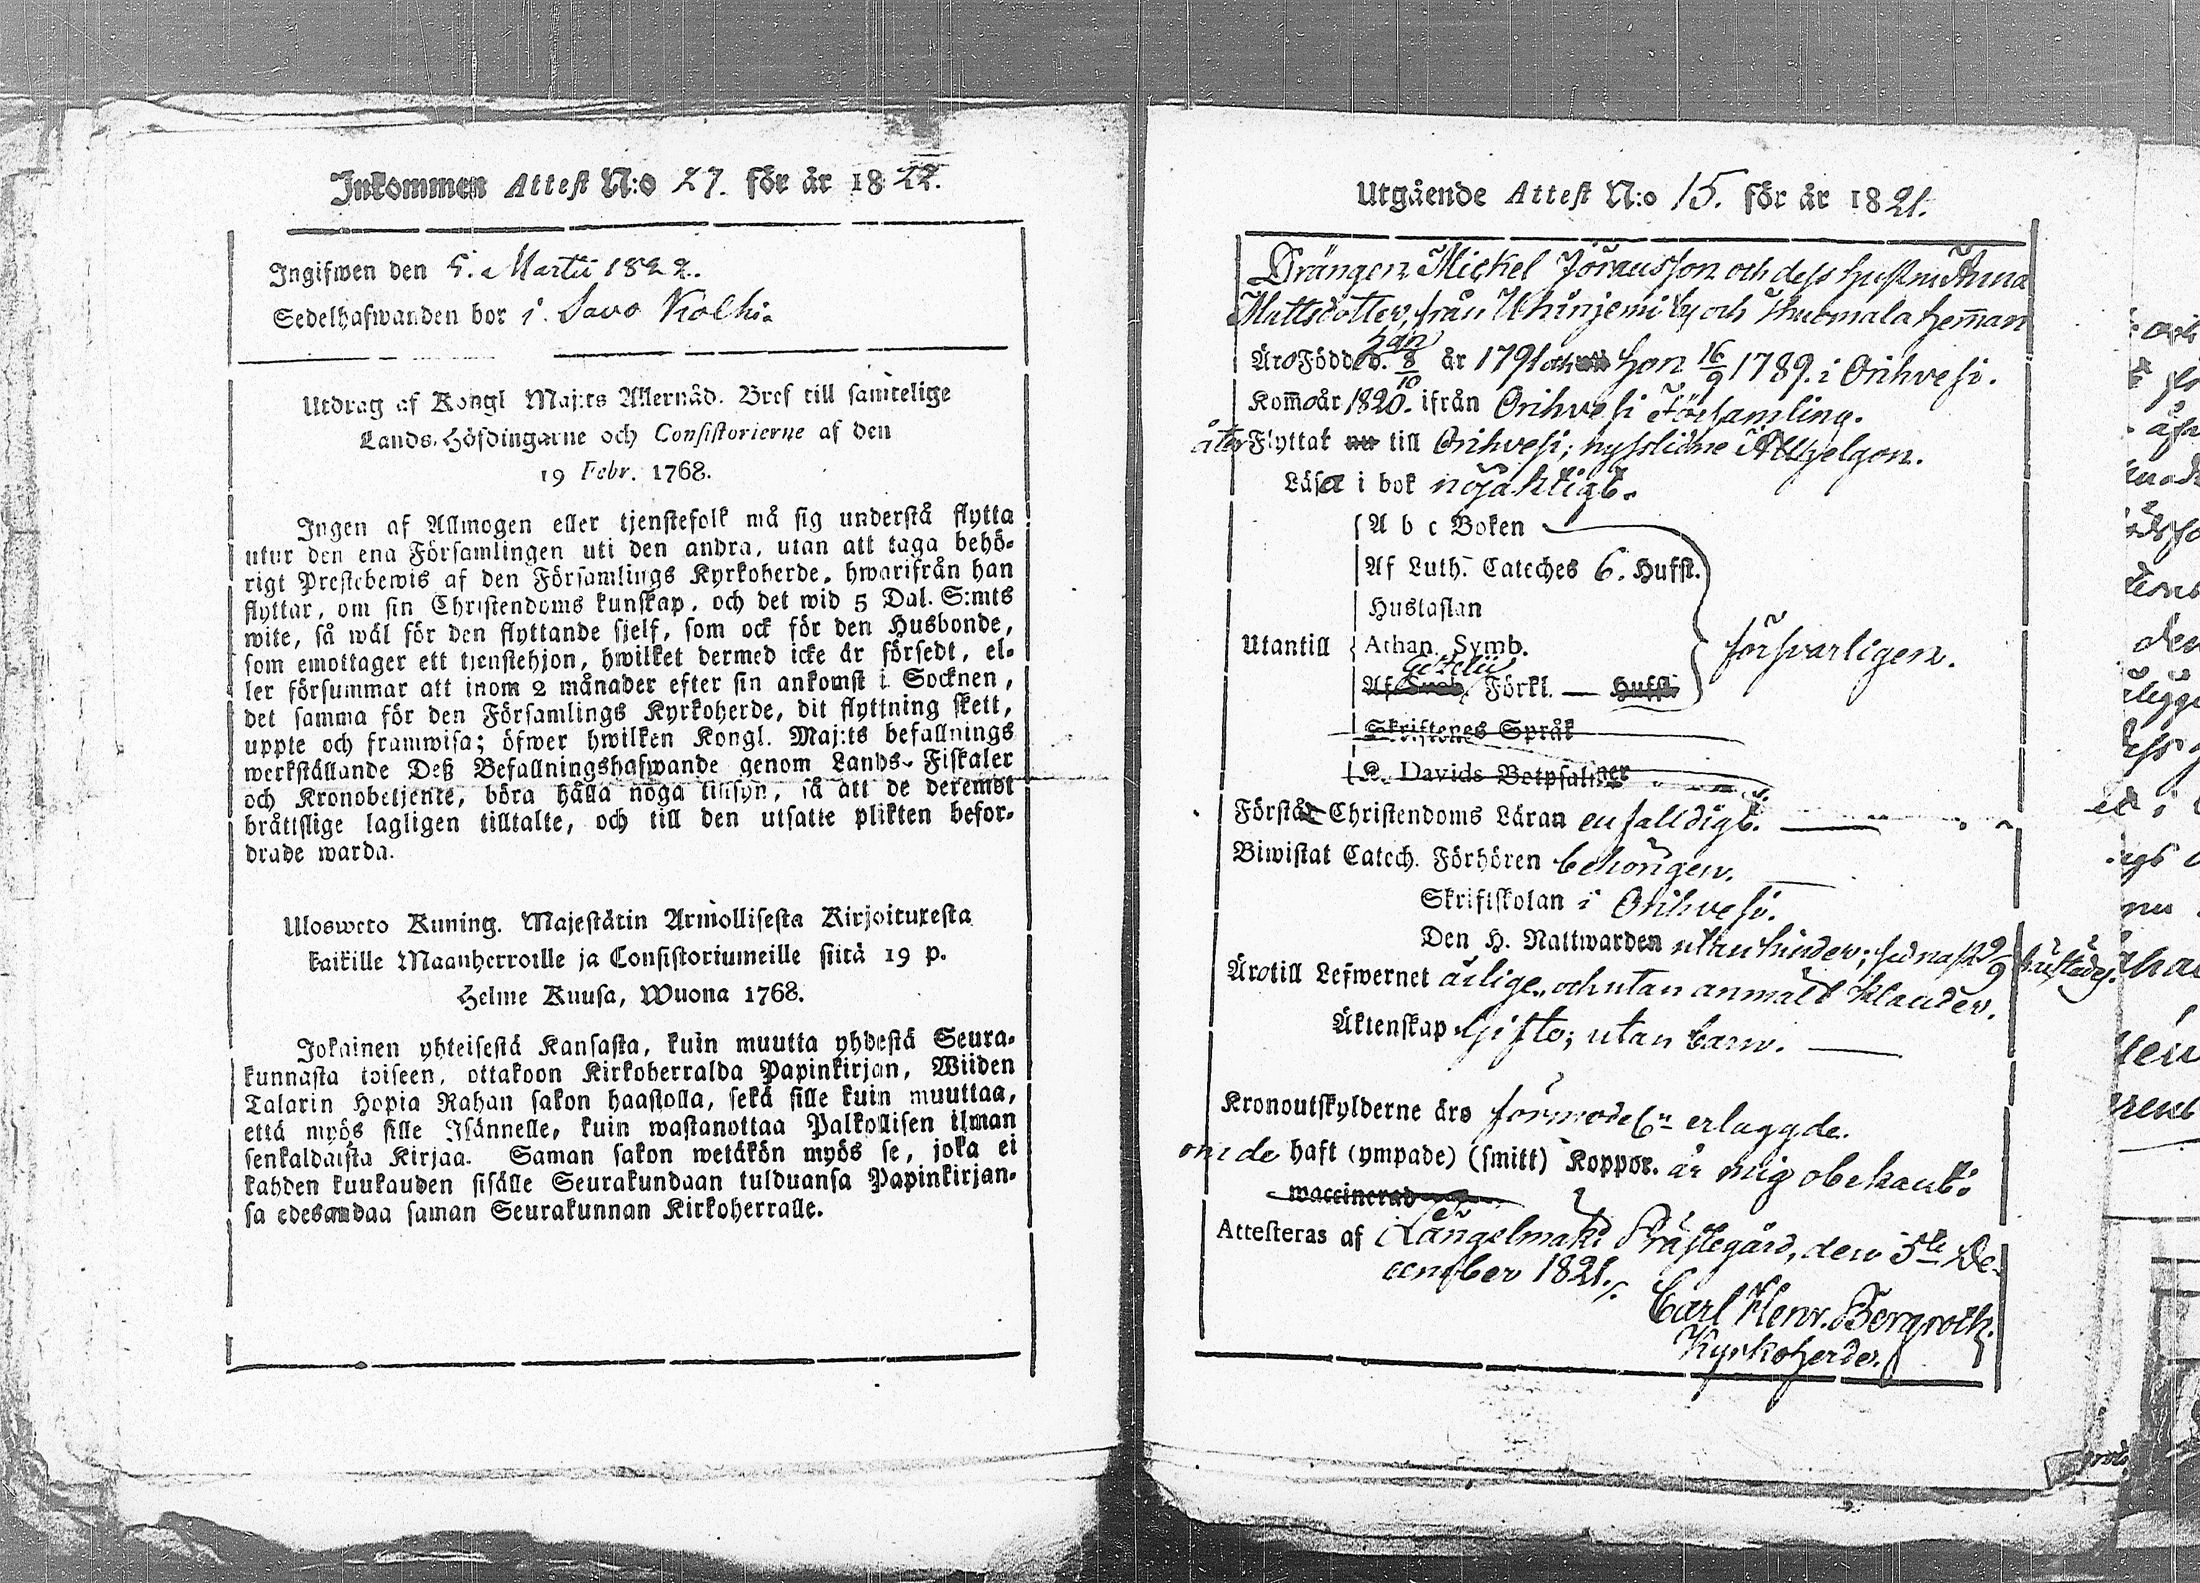 Inkommen Attest N:o 27. för år 1822.
Ingifwen den 5. Martii 1822.
Sedelhafwanden bor i Savo Kolhi
Utdrag af Kongl Maj:ts Allernåd. Bref till samtelige
Lands-Höfdingarne och Consistorierne af den
19 Febr. 1768.
Ingen af Allmogen eller tjenstefolk må sig understå flytta
utur den ena Församlingen uti den andra, utan att taga behö-
rigt Prestebewis af den Församlings Kyrkoherde, hwarifrån han
flyttar, om sin Christendoms kunskap, och det wid 5 Dal. S:mts
wite, så wäl för den flyttande sjelf, som ock för den Husbonde,
som emottager ett tjenstehjon, hwilket dermed icke är försedt, el-
ler försummar att inom 2 månader efter sin ankomst i Socknen,
det samma för den Församlings Kyrkoherde, dit flyttning skett,
uppte och framwisa; öfwer hwilken Kongl. Maj:ts befallnings
werkställande Deß Befallningshafwande genom Lands-Fiskaler
och Kronobetjente, böra hålla noga tillsyn, så att de deremot
bråttslige lagligen tilltalte, och till den utsatte plikten befor-
drade warda.
Ulosweto Kuning. Majestätin Armollisesta Kirjoituxesta
kaikille Maanherroille ja Consistoriumeille siitä 19 p.
Helme Kuusa, Wuona 1768.
Jokainen yhteisestä Kansasta, kuin muutta yhdestä Seura-
kunnasta toiseen, ottakoon Kirkoherralda Papinkirjan, Wiiden
Talarin Hopia Rahan sakon haastolla, sekä sille kuin muuttaa,
että myös sille Isännelle, kuin wastanottaa Palkollisen ilman
senkaldaista Kirjaa. Saman sakon wetäkön myös se, joka ei
kahden kuukauden sisälle Seurakundaan tulduansa Papinkirjan-
sa edesandaa saman Seurakunnan Kirkoherralle.
Utgående Attest N:o 15. för år 1821.
Drängen Mickel Göransson och dess hustru Anna
Mattsdotter, från Uhinjemi by och Thuomala heman
han
Äro Född d. 8/10 år 1791 och hon 16/9 1789. i Orihvesi.
Kommo år 1820. ifrån Orihvesi Församling.
åter Flyttat nu till Orihvesi; nyssledne Allhelgon.
Läsa i bok nöjaktigt.
A b c Boken
Af Luth. Cateches 6. Hufst.
Hustaflan
Utantill Athan. Symb. försvarligen.
Förkl. — Hufst.
Skriftenes Språk
K. Davids Botpsalmer
Förstå Christendoms Läran enfalldigt.
Biwistat Catech. Förhören behörigen.
Skriftskolan i Orihvesi.
Den H. Nattwarden utan hinder; sednast 9/9
Äro till Lefwernet ärlige, och utan anmält klander.
Äktenskap Gifte; utan barn.
Kronoutskylderne äro förmodel:n erlaggde.
om de haft (ympade) (smitt) Koppor. är mig obekant.
waccinerad
Attesteras af Längelmäki Prästegård, den 5te De-
cember 1821.
Carl Henr. Bergroth.
Kyrkoherde.